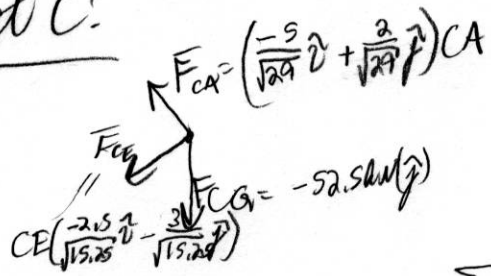 at C:
F̅_CA = (-5/√29 î + 2/√29 ĵ) CA
F̅_CE
F̅_CG = -52.5 kN(ĵ)
CE(-2.5/√15.25 î - 3/√15.25 ĵ)